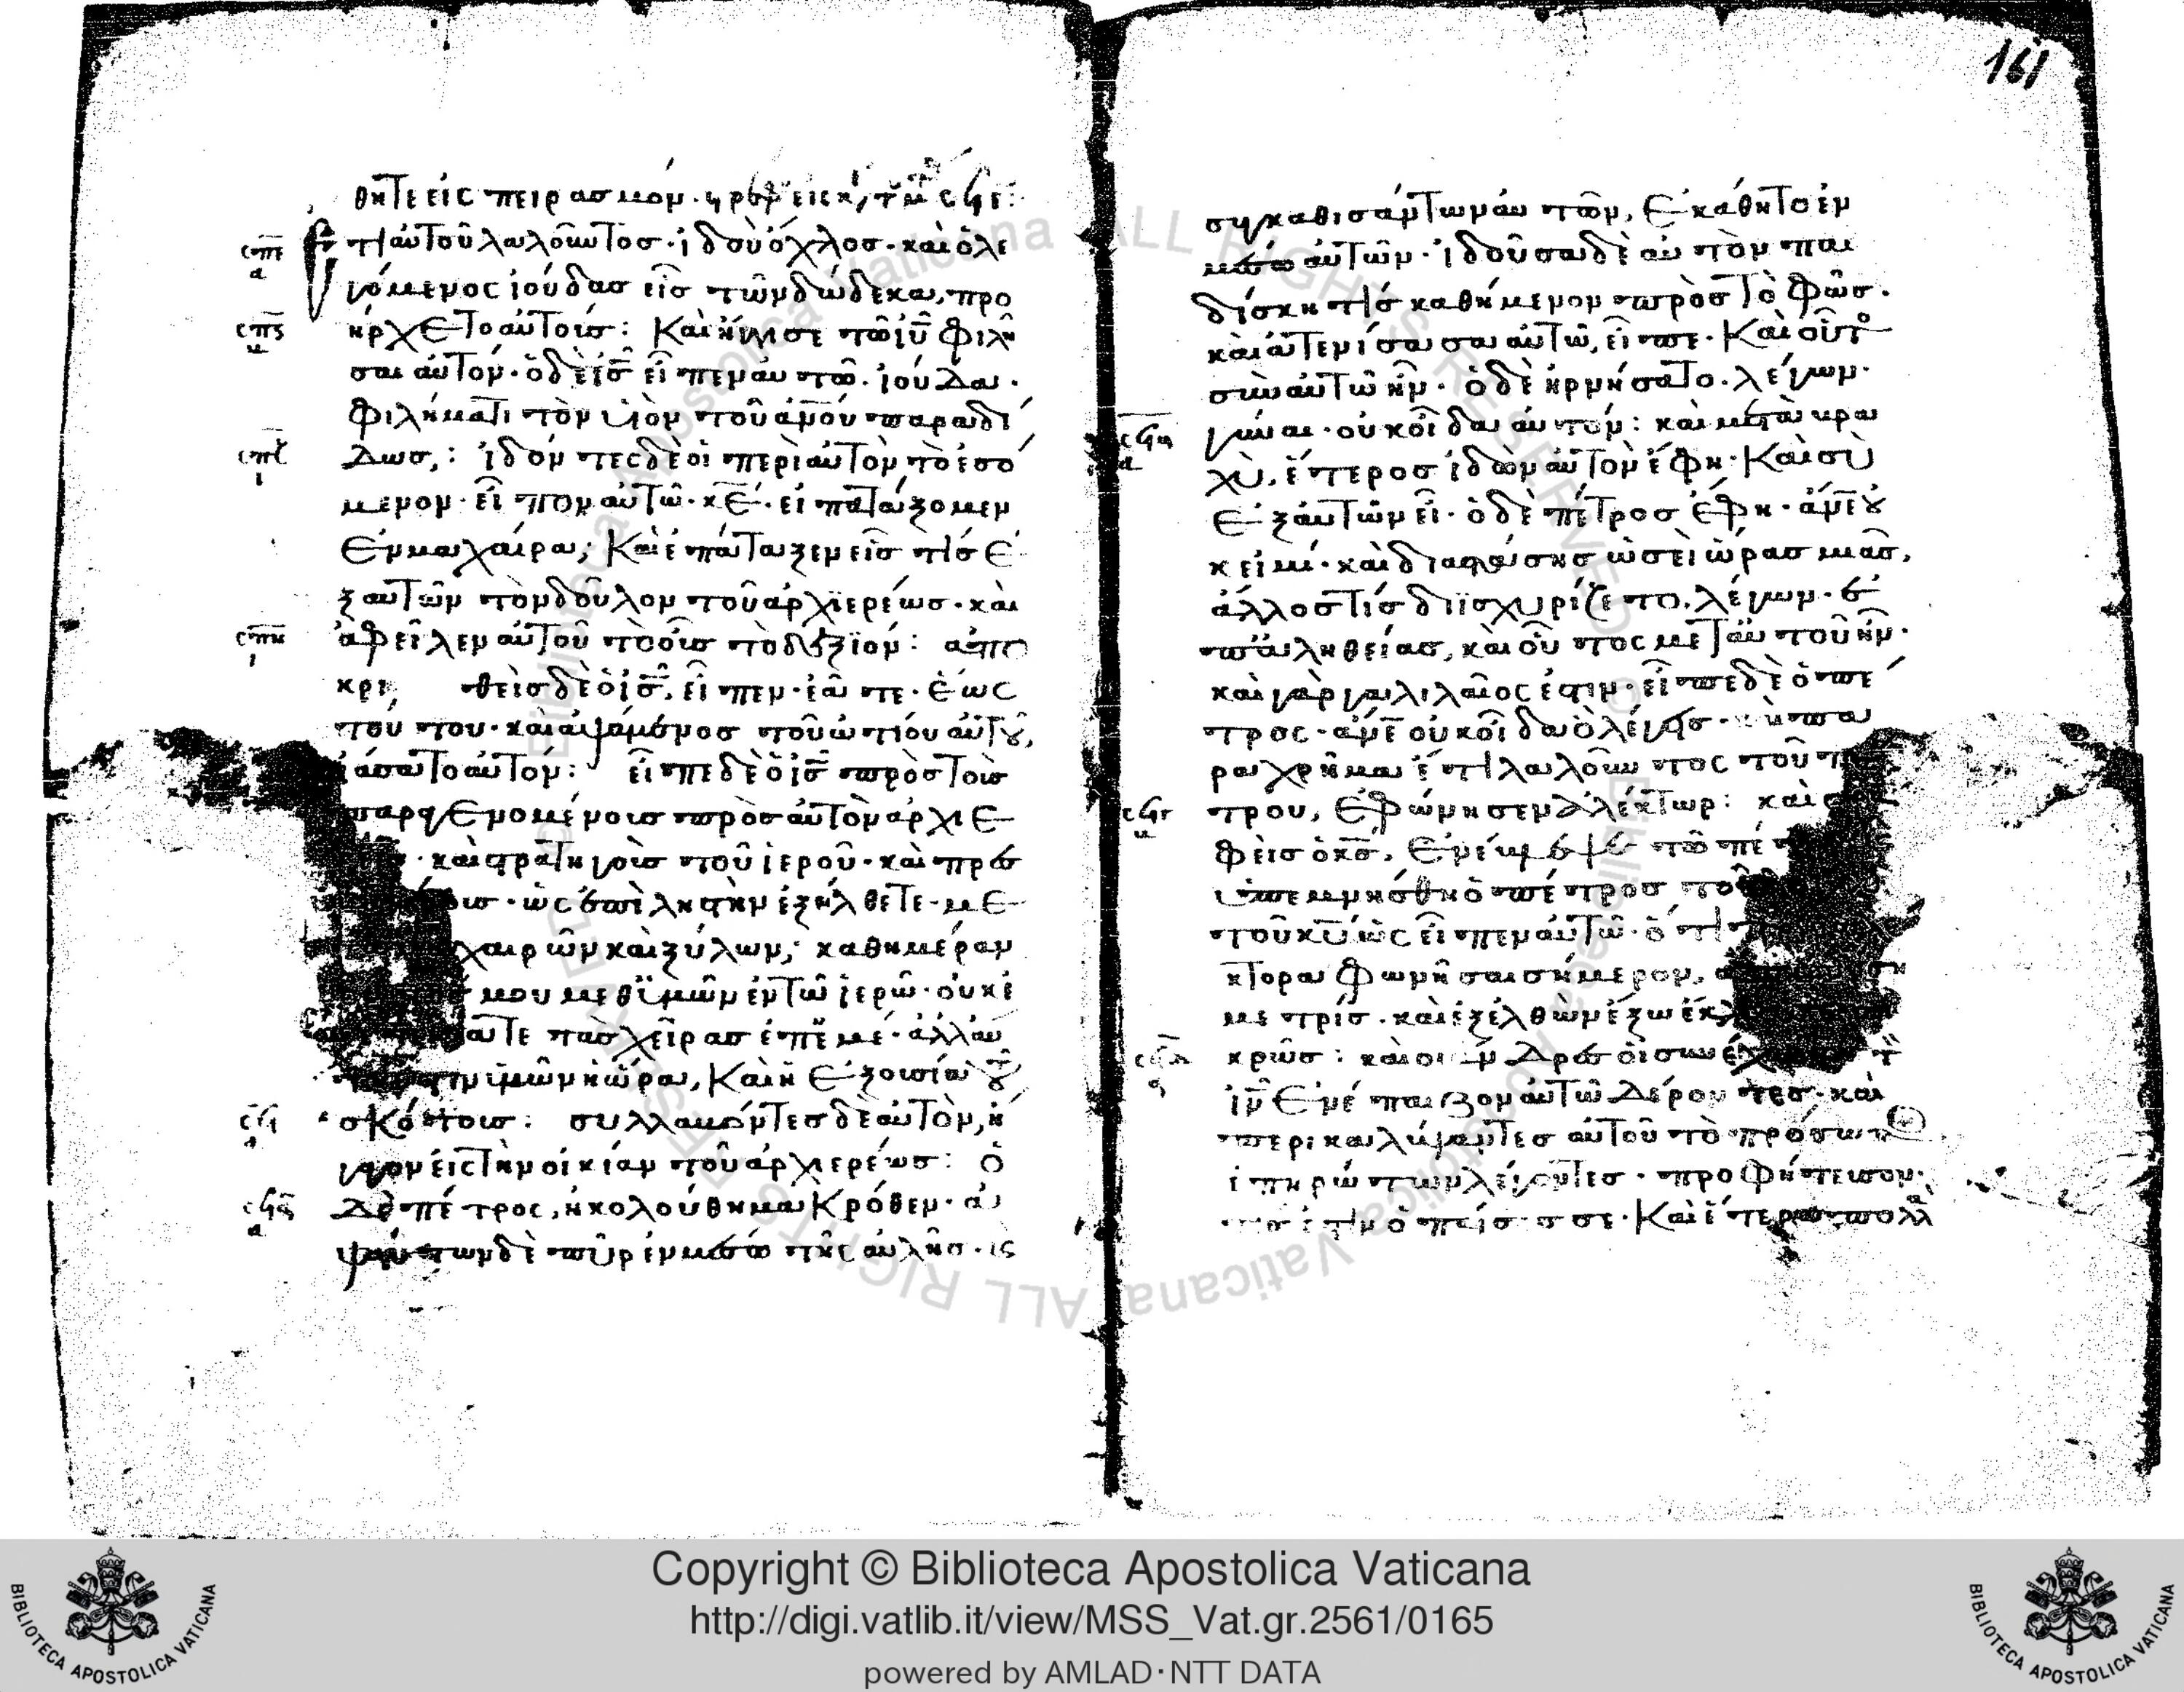 θητε εἰς πειρασμόν·
ἔτι αὐτοῦ λαλοῦντος· ἰδοὺ ὄχλος· καὶ ὁ λε
γόμενος ἰούδας εἷς τῶν δώδεκα, προ
ήρχετο αὐτοῖς: Καὶ ἤγγισε τῶ ἰῦ φιλῆ
σαι αὐτόν· ὁ δὲ ἰς̅ εἶπεν αὐτῶ· ἰούδα·
φιλήματι τὸν υἱὸν τοῦ ἀνου παραδί
δως,: ἰδόντες δὲ οἱ περὶ αὐτὸν τὸ ἐσό
μενον· εἶπον αὐτῶ· κε̅· εἰ πατάξομεν
ἐν μαχαίρα; Καὶ ἐπάταξεν εἷς τὶς ἐ
ξ αὐτῶν τὸν δοῦλον τοῦ ἀρχιερέως· καὶ
ἀφεῖλεν αὐτοῦ τὸ οὖς τὸ δεξϊόν: ἀπο
κρι θεὶς δὲ ὁ ἰς̅, εἶπεν· ἐᾶτε· ἕως
τούτου· καὶ ἁψάμενος τοῦ ὠτίου αὐτοῦ,
ἰάσατο αὐτόν: εἶπε δὲ ὁ ἰς̅ πρὸς τοὺς
παραγενομένους πρὸς αὐτὸν ἀρχιε
· καὶ στρατηγοὺς τοῦ ἱεροῦ· καὶ πρεσ
ους· ὡς ἐπὶ ληστὴν ἐξήλθετε· με
χαιρῶν καὶ ξύλων; καθημέραν
μου μεθ ὑμῶν ἐν τῶ ἱερῶ· οὐκ ἐ
ατε τὰς χεῖρας ἐπ ἐμέ· ἀλλ αὐ
ὑμῶν ἡ ὥρα, Καὶ ἡ ἐξουσία τοῦ
σκότους: συλλαβόντες δὲ αὐτὸν, ἤ
γαγον εἰς τὴν οἰκίαν τοῦ ἀρχιερέως: ὁ
δὲ πέτρος, ἠκολούθη μακρόθεν· ἁ
ψάντων δὲ πῦρ ἐν μέσω τῆς αὐλῆς·
161
συγκαθισάντων αὐτῶν, ἐκάθητο ἐν
μέσω αὐτῶν· ἰδοῦσα δὲ αὐτὸν παι
δίσκη τὶς καθήμενον πρὸς τὸ φῶς·
καὶ ἀτενίσασα αὐτῶ, εἶπε· Καὶ οὗτος
σὺν αὐτῶ ἦν· ὁ δὲ ἠρνήσατο· λέγων·
γύναι· οὐκ οἶδα αὐτόν: καὶ μετὰ βρα
χὺ, ἕτερος ἰδὼν αὐτὸν ἔφη· Καὶ σὺ
ἐξ αὐτῶν εἶ· ὁ δὲ πέτρος ἔφη· ἄνε οὐ
κ εἰμί· καὶ διαστάσης ὡσεὶ ὥρας μιᾶς,
ἄλλος τὶς διϊσχυρίζετο, λέγων· ἐ
π ἀληθείας, καὶ οὗτος μετ αὐτοῦ ἦν·
καὶ γὰρ γαλιλαῖος ἐστιν· εἶπε δὲ ὁ πέ
τρος· ἄνε οὐκ οἶδα ὃ λέγεις· καὶ πα
ραχρῆμα ἔτι λαλοῦντος τοῦ π
τρου, ἐφώνησεν ἀλέκτωρ: καὶ σ
φεὶς ὁ κς̅, ἐνέβλεψε τῶ πέ
ὑπεμνήσθη ὁ πέτρος τοῦ
τοῦ κυ̅ ὡς εἶπεν αὐτῶ· ὅτι
κτορα φωνῆσαι σήμερον, ἀ
με τρίς· καὶ ἐξελθὼν ἔξω ἔκλ
κρῶς: καὶ οἱ ἄνδρες οἱ συνέχ
ἰν̅ ἐνέπαιζον αὐτῶ δέροντες· καὶ
περικαλύψαντες αὐτοῦ τὸ πρόσωπ
ἐπηρώτων λέγοντες· προφήτευσον·
ἐστιν ὁ παίσας σε· Καὶ ἕτερα πολλὰ
Copyright © Biblioteca Apostolica Vaticana
http://digi.vatlib.it/view/MSS_Vat.gr.2561/0165
powered by AMLAD·NTT DATA
BIBLIOTECA APOSTOLICA VATICANA
BIBLIOTECA APOSTOLICA VATICANA